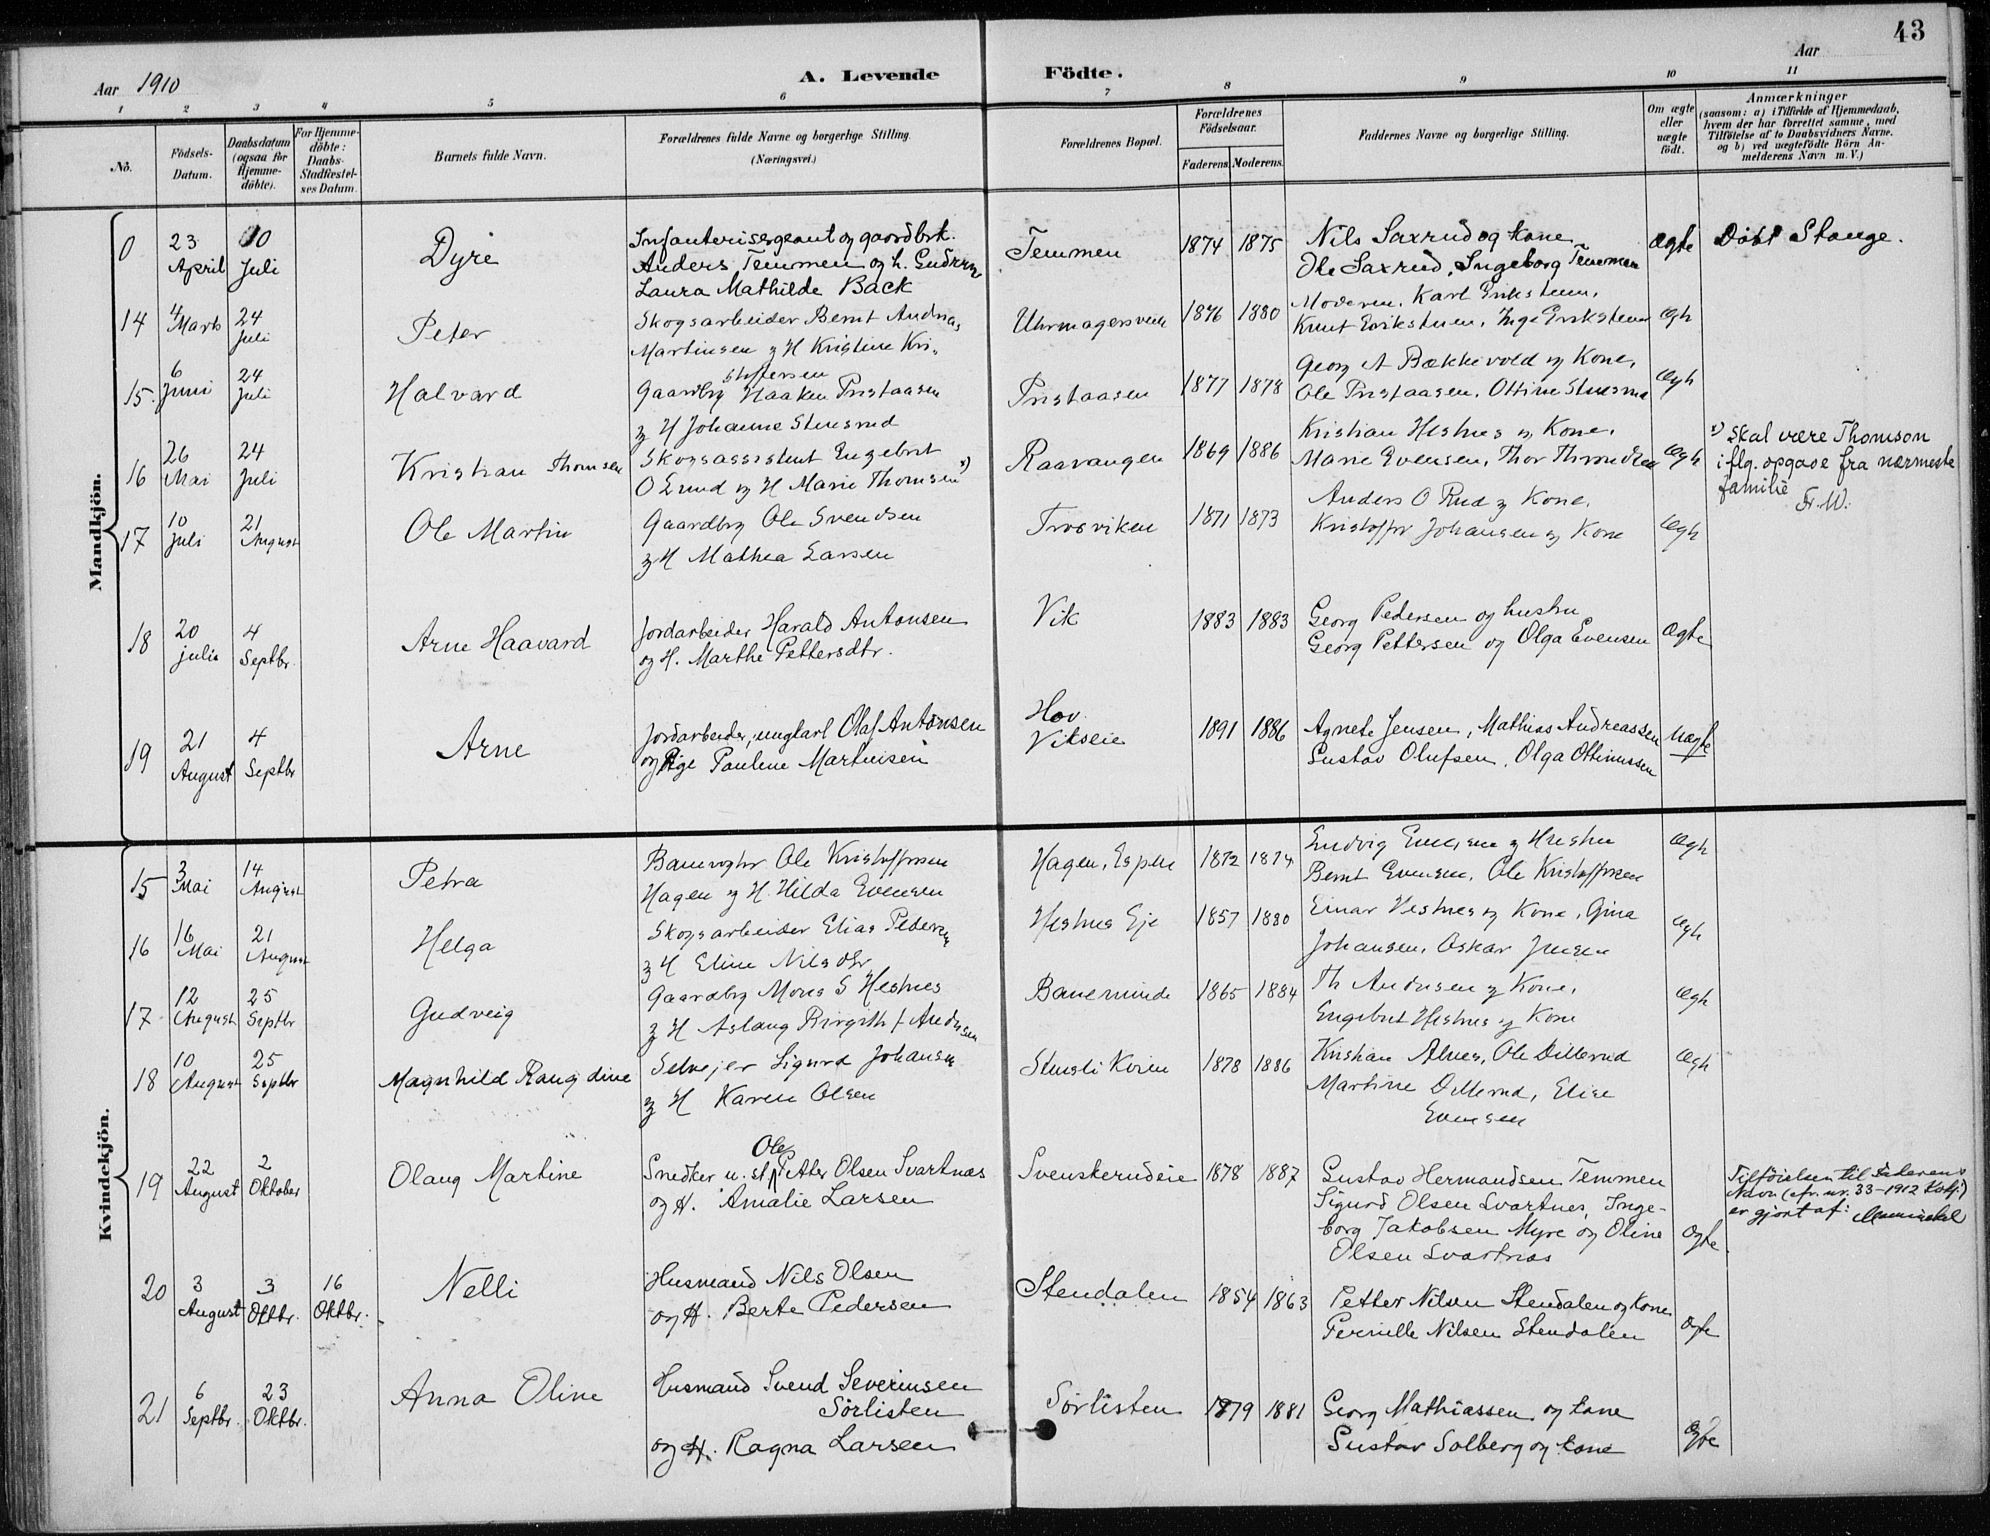 43
Aar 1910
A. Levende
Födte.
Aar
1 2 3 4 5 6 7 8 9 10 11
No.
Födsels-
Datum.
Daabsdatum
(ogsaa for
Hjemme-
döbte).
For Hjemme-
döbte:
Daabs-
Stadfæstel-
ses Datum.
Barnets fulde Navn.
Forældrenes fulde Navne og borgerlige Stilling.
(Næringsvei.)
Forældrenes Bopæl.
Forældrenes
Födselsaar.
Faderens. Moderens.
Faddernes Navne og borgerlige Stilling.
Om ægte
eller
uægte
födt.
Anmærkninger
(saasom: a) i Tilfælde af Hjemmedaab,
hvem der har forrettet samme, med
Tilföielse af to Daabsvidners Navne.
og b) ved uægtefödte Börn An-
melderens Navn m. V.)
Mandkjön.
0
23
April
10
Juli
Dyre
Infanterisergeant og gaardbrk.
Anders Temmen og h. Gudrun
Laura Mathilde Back
Temmen
1874 1875
Nils Saxrud og kone
Ole Saxrud, Ingeborg Temmen
Ægte
Döbt Stange.
14
4
Marts
24
Juli
Peter
Skogsarbeider Bernt Andreas
Martinsen og H Kristine Kri-
stoffersen
1876 1880
Moderen, Karl Erikstuen,
Knut Erikstuen, Inga Erikstuen
Ægte
15.
6
Juni
24
Juli
Halvard
Gaardbrg Haaken Pristaasen
og H Johanne Stensrud
Pristaasen
1877 1878
Georg A Bækkevold og Kone,
Ole Pristaasen, Ottine Stensrud
Ægte
16
26
Mai
24
Juli
Kristian Thomsen
Skogsassistent Engebret
O Lund og H Marie Thomsen x)
Raavangen
1869 1886
Kristian Hesnes og Kone,
Marie Evensen, Thor Throndsen
Ægte
x) Skal være Thomson
i flg. opgave fra nærmeste
familie
Fr. W.
17
10
Juli
21
August
Ole Martin
Gaardbrg Ole Svendsen
og H Mathea Larsen
Trosviken
1871 1873
Anders O Rud og Kone,
Kristoffer Johansen og Kone
Ægte
18
20
juli
4
Septbr.
Arne Haavard
Jordarbeider Harald Antonsen
og H. Marthe Pettersdtr.
Vik
1883 1883
Georg Pedersen og hustru
Georg Pettersen og Olga Evensen
Ægte
19
21
August
4
Septbr
Arne
Jordarbeider, ungkarl Olaf Antonsen
og Pige Pauline Martinsen
Hov
Vikseie
1891 1886
Agnete Jensen, Mathias Andreassen
Gustav Olufsen, Olga Ottinussen
Uægte
Kvindekjön.
15
3
Mai
14
August
Petra
Banevogter Ole Kristoffersen
Hagen og H. Hilda Evensen
Hagen, Espen
1872 1874
Ludvig Evensen og Hustru
Bernt Evensen, Ole Kristoffersen
Ægte
16
16
Mai
21
August
Helga
Skogsarbeider Elias Pedersen
og H Eline Nilsdtr
Hesnes Eje
1857 1880
Einar Hesnes og Kone, Gina
Johansen, Oskar Jensen
Ægte
17
12
August
25
Septbr
Gudveig
Gaardbrg Mons S Hesnes
og H Aslaug Birgith f Andersen
Baneminde
1865 1884
Th Andersen og Kone,
Engebret Hesnes og Kone
Ægte
18
10
August
25
Septbr
Magnhild Raugdine
Selvejer Sigurd Johansen
og H Karen Olsen
1878 1886
Kristian Alnes, Ole Dillerud
Martine Dillerud, Elise
Evensen
Ægte
19
22
August
2
Oktober
Olaug Martine
Ole
Snedker u. st. Petter Olsen Svartnæs
og H. Amalie Larsen
Svenskerudeie
1878 1887
Gustav Hermandsen Temmen
Sigurd Olsen Svartnes, Inge-
borg Jakobsen Myre og Oline
Olsen Svartnæs
Ægte.
Tilföielsen til faderens
Navn (cfr. nr. 33-1912 Kvkj.)
er gjort af:
20
3
August
3
Oktbr.
16
Oktbr.
Nelli
Husmand Nils Olsen
og H. Berte Pedersen
Stendalen
1854 1863
Petter Nilsen Stendalen og Kone
Pernille Nilsen Stendalen
Ægte
21
6
Septbr.
23
Oktbr.
Anna Oline
Husmand Svend Severinsen
Sörlisten
og H. Ragna Larsen
Sörlisten
1879 1881
Georg Mathiassen og kone
Gustav Solberg og kone
Ægte